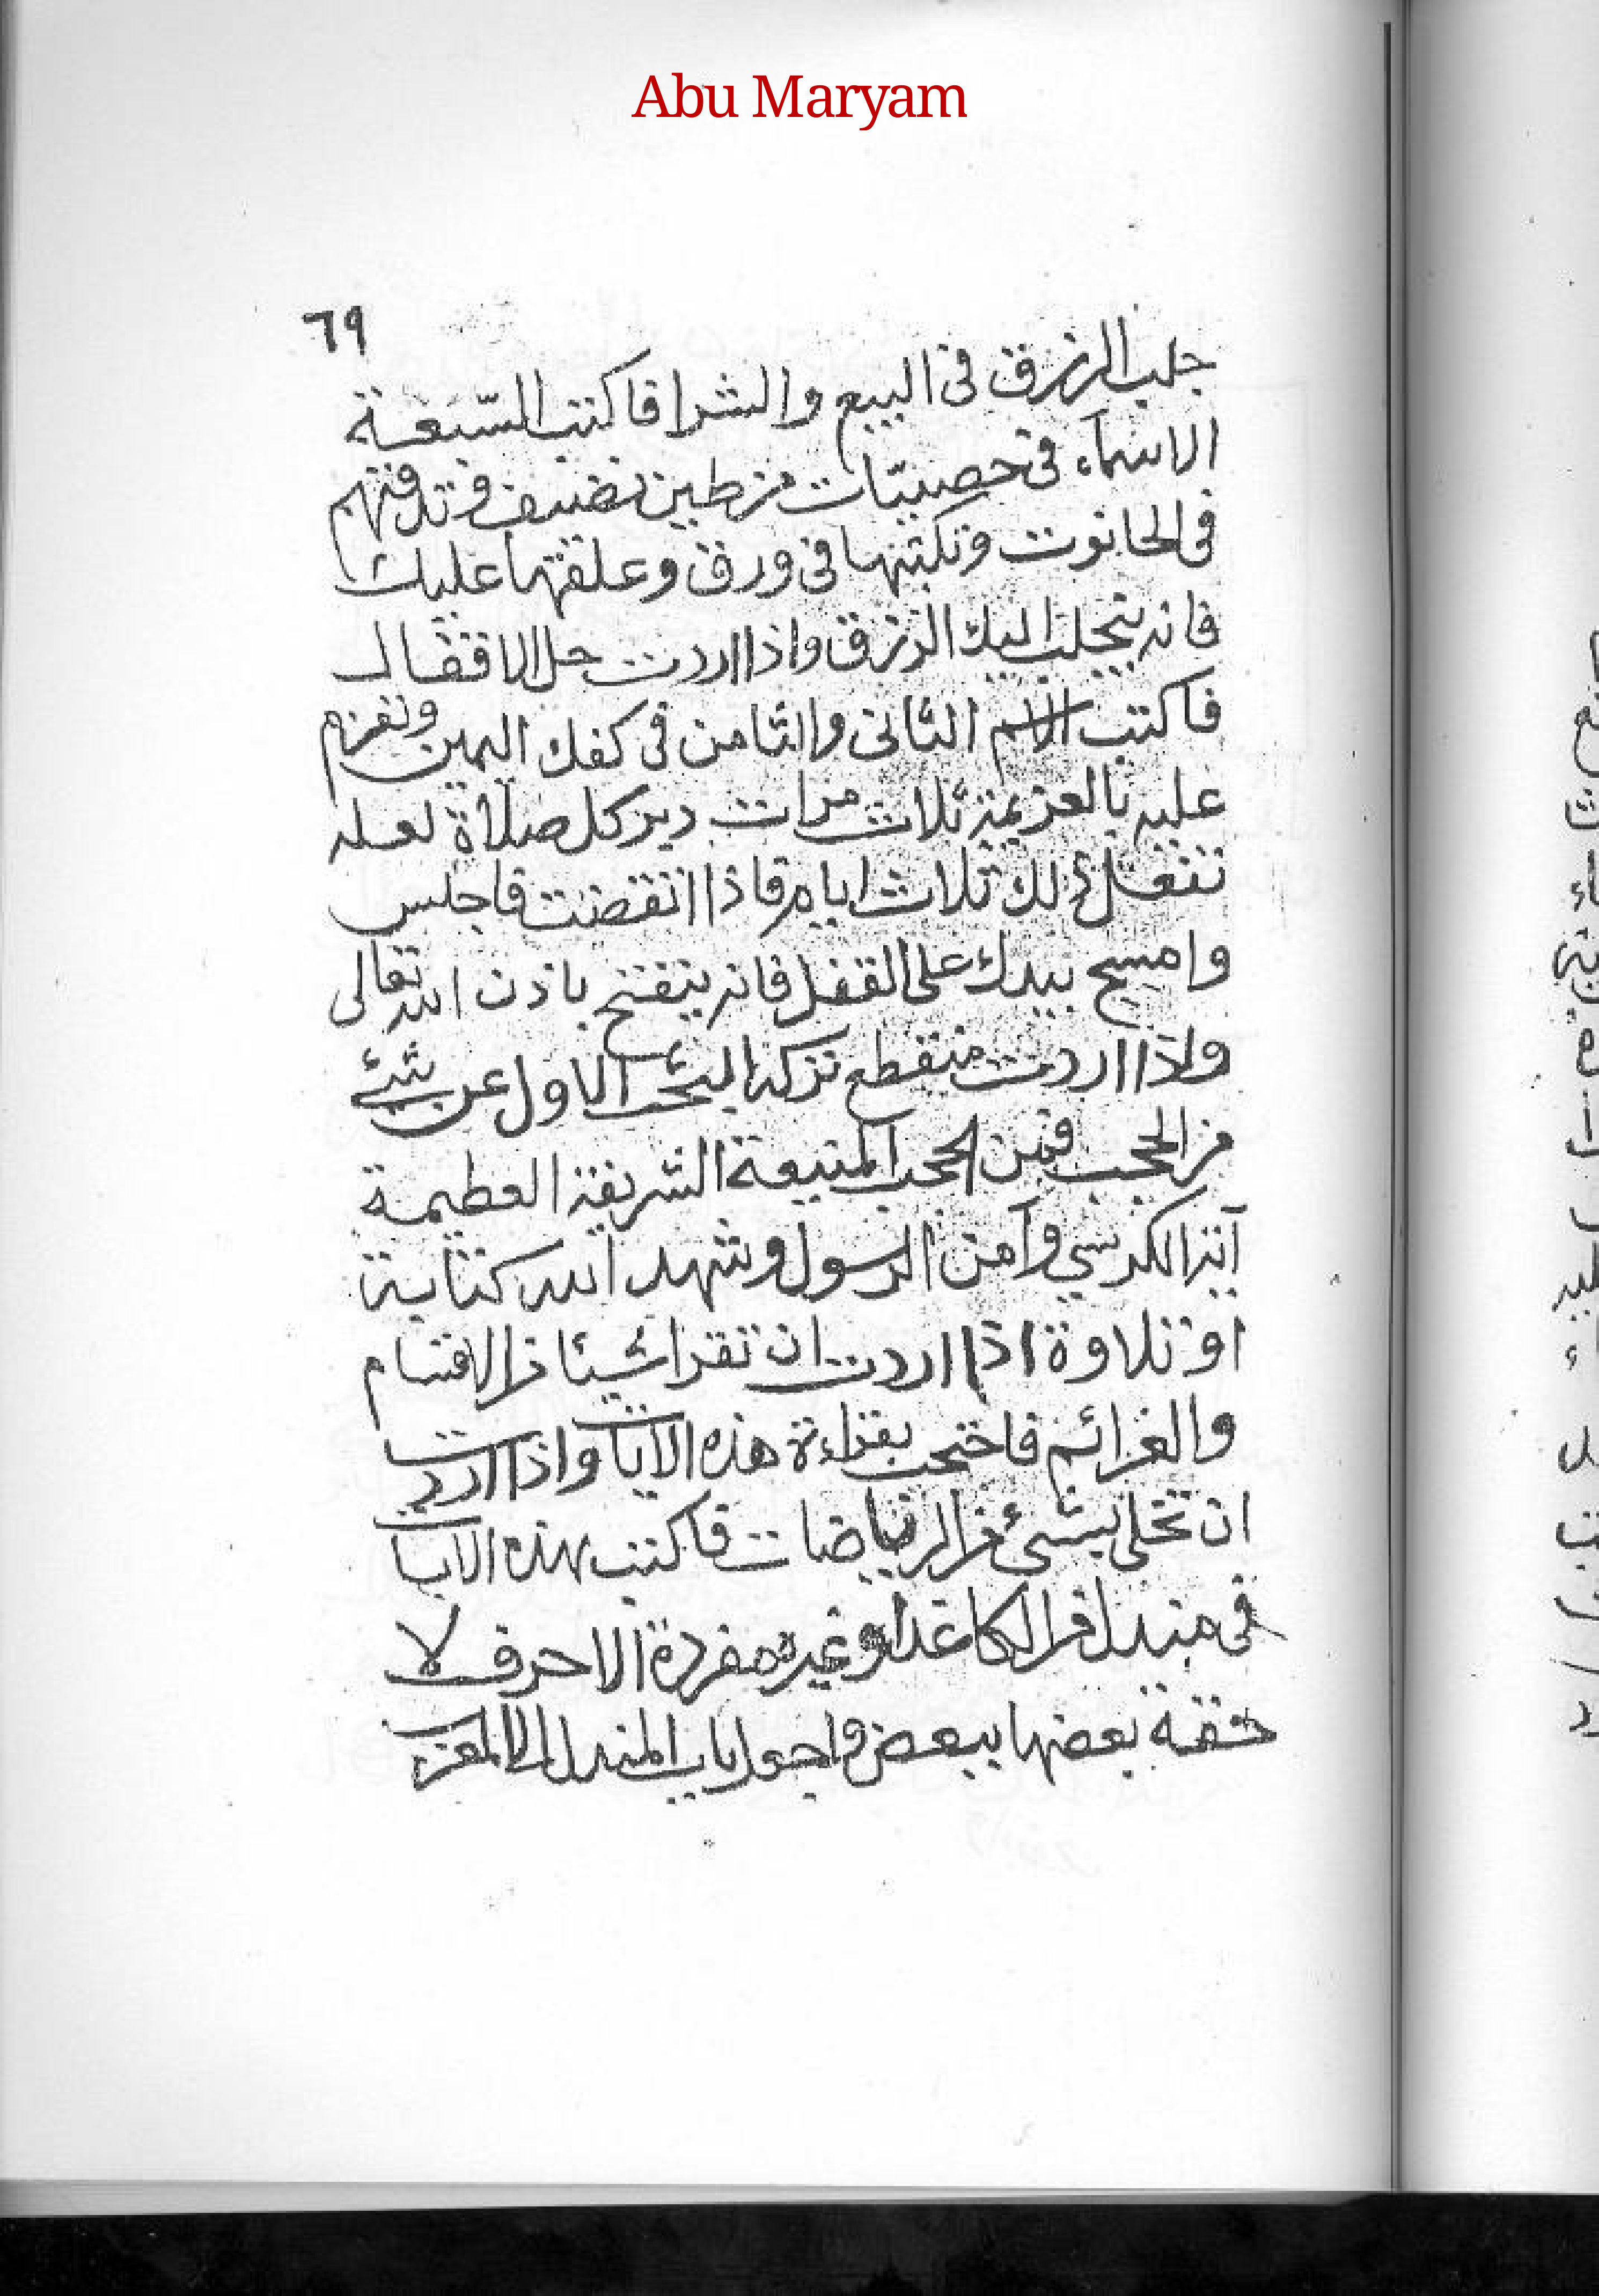 Abu Maryam
٦٩
جلب الرزق فى البيع والشرا فاكتب السّبعة
الاسمآء فى حصيات من طين نضيف وتدفنهم
فى الحانوت وتكتبها فى ورق وعلقها عليك
فانه يتجلب اليك الرزق واذا اردت حل الاقفال
فاكتب الاسم الثانى والثامن فى كفك اليمين وتعزم
عليه بالعزيمة ثلاث مرات دبر كل صلاة لعله
تفعل ذلك ثلاث ايام فاذا انقضت فاجلس
وامسح بيدك على القفل فانه ينفتح باذن الله تعالى
واذا اردت منقطع تركه الاول عن شئ
من الحجب فمن الحجب المنيعة الشريفة العظيمة
آية الكرسي وآمن الرسول وشهد الله كتابة
او تلاوة اذا اردت ان تقرا شيئا من الاقسام
والعزائم فاحتجب بقراءة هذه الايات واذا اردت
ان تخلى بشئ من الرياضات فاكتب هذه الايات
فى مندل من الكاغد او غيره مفردة الاحرف لا
بعضها ببعض واجعل باب المندل